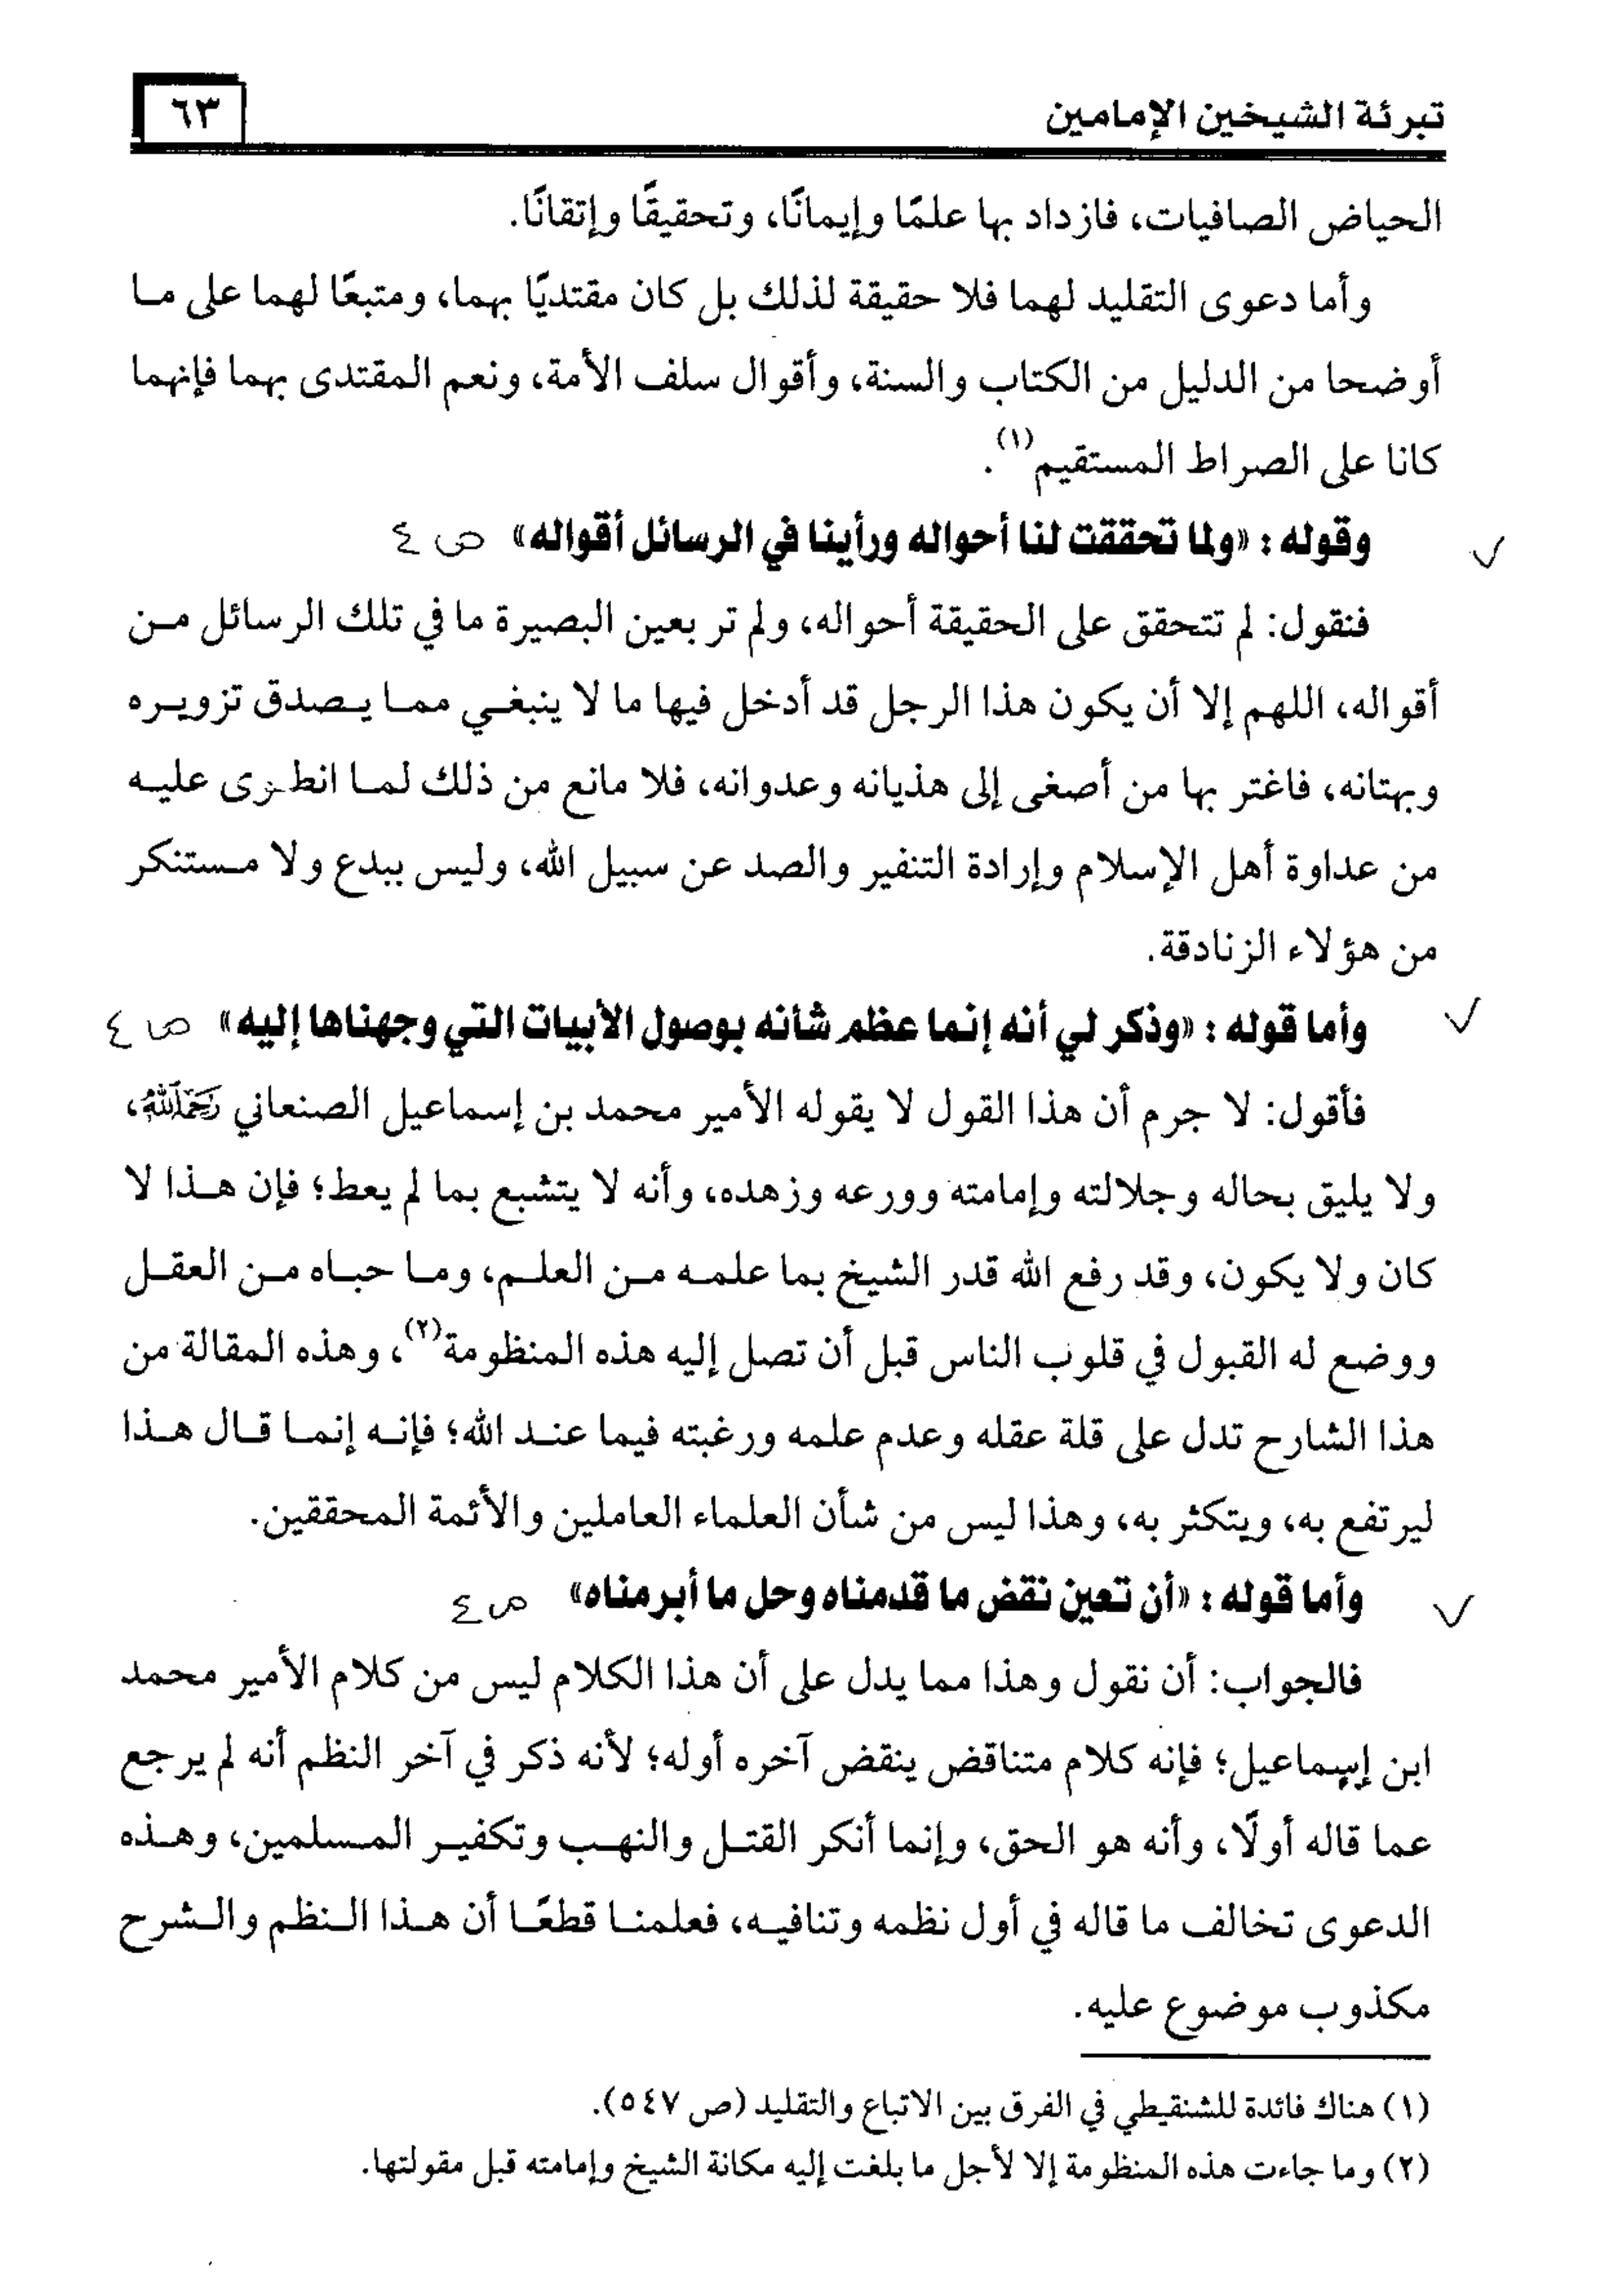 تبرئة الشيخين الإمامين
٦٣
الحياض الصافيات، فازداد بها علمًا وإيمانًا، وتحقيقًا وإتقانًا.
وأما دعوى التقليد لهما فلا حقيقة لذلك بل كان مقتديًا بهما، ومتبعًا لهما على ما
أوضحا من الدليل من الكتاب والسنة، وأقوال سلف الأمة، ونعم المقتدى بهما فإنهما
كانا على الصراط المستقيم(١).
وقوله : «ولما تحققت لنا أحواله ورأينا في الرسائل أقواله» ص ٤
فنقول: لم تتحقق على الحقيقة أحواله، ولم تر بعين البصيرة ما في تلك الرسائل من
أقواله، اللهم إلا أن يكون هذا الرجل قد أدخل فيها ما لا ينبغي مما يصدق تزويره
وبهتانه، فاغتر بها من أصغى إلى هذيانه وعدوانه، فلا مانع من ذلك لما انطوى عليه
من عداوة أهل الإسلام وإرادة التنفير والصد عن سبيل الله، وليس ببدع ولا مستنكر
من هؤلاء الزنادقة.
وأما قوله : «وذكر لي أنه إنما عظم شأنه بوصول الأبيات التي وجهناها إليه» ص ٤
فأقول: لا جرم أن هذا القول لا يقوله الأمير محمد بن إسماعيل الصنعاني رحمه الله،
ولا يليق بحاله وجلالته وإمامته وورعه وزهده، وأنه لا يتشبع بما لم يعط؛ فإن هذا لا
كان ولا يكون، وقد رفع الله قدر الشيخ بما علمه من العلم، وما حباه من العقل
ووضع له القبول في قلوب الناس قبل أن تصل إليه هذه المنظومة(٢)، وهذه المقالة من
هذا الشارح تدل على قلة عقله وعدم علمه ورغبته فيما عند الله؛ فإنه إنما قال هذا
ليرتفع به، ويتكثر به، وهذا ليس من شأن العلماء العاملين والأئمة المحققين.
وأما قوله : «أن تعين نقض ما قدمناه وحل ما أبرمناه» ص ٤
فالجواب: أن نقول وهذا مما يدل على أن هذا الكلام ليس من كلام الأمير محمد
ابن إسماعيل؛ فإنه كلام متناقض ينقض آخره أوله؛ لأنه ذكر في آخر النظم أنه لم يرجع
عما قاله أولًا، وأنه هو الحق، وإنما أنكر القتل والنهب وتكفير المسلمين، وهذه
الدعوى تخالف ما قاله في أول نظمه وتنافيه، فعلمنا قطعًا أن هذا النظم والشرح
مكذوب موضوع عليه.
(١) هناك فائدة للشنقيطي في الفرق بين الاتباع والتقليد (ص ٥٤٧).
(٢) وما جاءت هذه المنظومة إلا لأجل ما بلغت إليه مكانة الشيخ وإمامته قبل مقولتها.